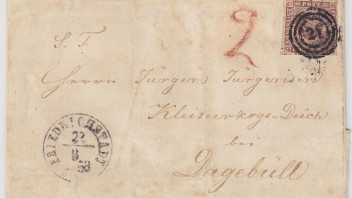 S. T.
2
21
Herrn Jürgen Jürgensen
Kleiserkogs-Deich
bei
Dagebüll
FRIEDRICHSTADT
22
8